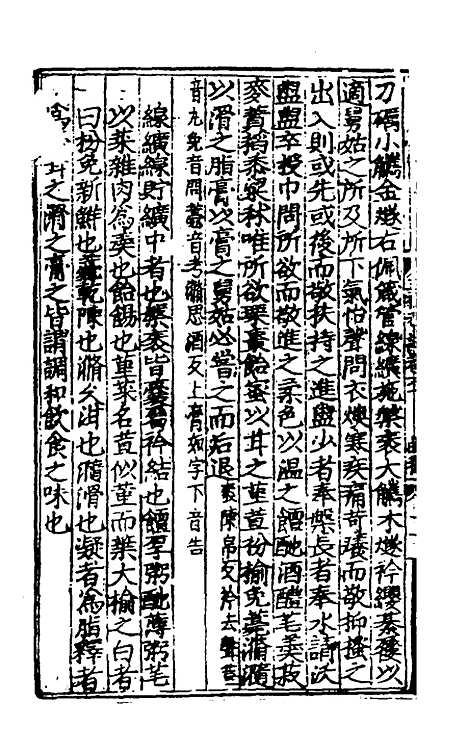 刀礪小觿金燧右佩箴管線纊施縏袠大觿木燧衿纓綦屨以
適舅姑之所及所下氣怡聲問衣燠寒疾痛苛癢而敬抑搔之
出入則或先或後而敬扶持之進盥少者奉槃長者奉水請沃
盥盥卒授巾問所欲而敬進之柔色以温之饘酏酒醴芼羹菽
麥蕡稻黍粱秫唯所欲棗栗飴蜜以甘之堇荁枌榆免薧滫瀡
以滑之脂膏以膏之舅姑必嘗之而后退袠陳帛反衿去聲苛
音九免音問薧音考滫思酒反上膏如字下音告
線纊線貯纊中者也縏袠皆囊屬衿結也饘厚粥酏薄粥芼
以菜雜肉為羹也飴餳也堇菜名荁似堇而葉大榆之白者
曰枌免新鮮也薧乾陳也滫久泔也瀡滑也凝者為脂釋者
甘之滑之膏之皆謂調和飲食之味也